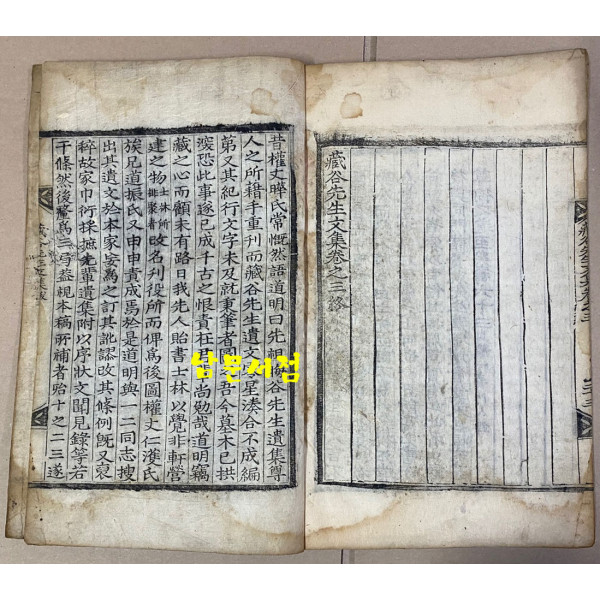 藏谷先生文集卷之三終
昔權丈曄氏常慨然語道明曰先祖谷先生遺集尊
人之所籍手重刊而藏谷先生遺文零星湊合不成編
第又其紀行文字未及就秉筆者圖之吾今墓木已拱
恐此事遂已成千古之恨責在君尚勉哉道明竊
藏之心而顧未有路日我先人貽書士林以覺非軒營
建之物士林所排聚者改名刊役所而俾爲後圖權丈仁濩氏
族兄道振氏又申申責成焉於是道明與一二同志搜
出其遺文於本家妄爲之訂其訛謬改其條例旣又裒
稡故家巾衍採摭先輩遺集附以序狀文聞見錄等若
干條然後釐爲三弓盖視本稿所補者殆十之二三遂
남문서점